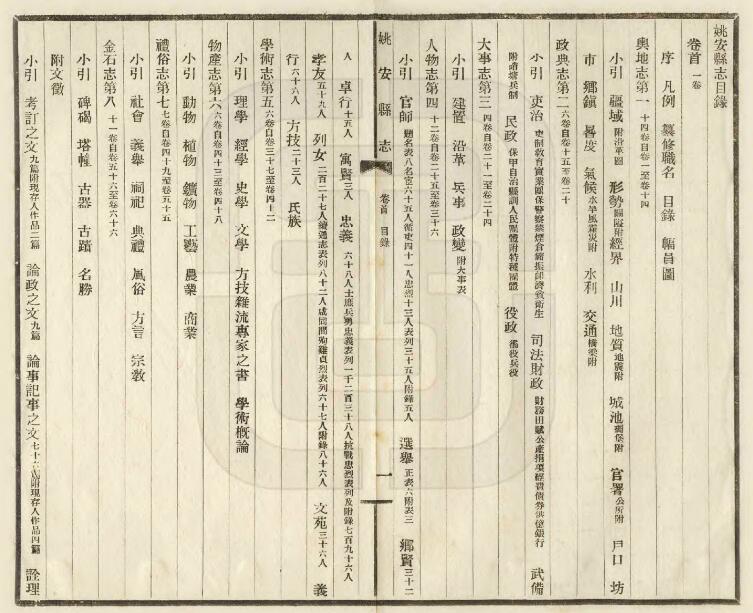 姚安縣志目錄
卷首 一卷
序 凡例 纂修職名 目錄 幅員圖
輿地志第一 十四卷自卷一至卷十四
小引 疆域 附沿革圖 形勢 關隘附 經界 山川 地質 地震附 城池 碉堡附 官署 公所附 戶口 坊
市 鄉鎮 晷度 氣候 水旱風霜災附 水利 交通 橋梁附
政典志第二 六卷自卷十五至卷二十
小引 吏治 司法 財政 武備
附諸壙兵制 民政 保甲自治縣訓人民團體附特種團體 役政 徭役兵役
大事志第三 四卷自卷二十一至卷二十四
小引 建置 沿革 兵事 政變 附大事表
人物志第四 十二卷自卷二十五至卷三十六
小引 官師 題名表八名宦六十五人循吏四十一人忠烈十三人表列三十五人附錄五人 選舉 正表六附表三 鄉賢 三十二
姚安縣志
卷首 目錄
一
人 卓行 十五人 寓賢 三人 忠義 六十八人士庶兵勇忠義表列一千二百三十八人抗戰忠烈表列及附錄七百九十六人
孝友 五十九人 列女 二百二十七人續通志表列八十二人咸同間殉難貞烈表列六十七人附錄八十六人 文苑 三十六人 義
行 六十六人 方技 二十三人 氏族
學術志第五 六卷自卷三十七至卷四十二
小引 理學 經學 史學 文學 方技雜流專家之書 學術概論
物產志第六 六卷自卷四十三至卷四十八
小引 動物 植物 鑛物 工藝 農業 商業
禮俗志第七 七卷自卷四十九至卷五十五
小引 社會 義舉 祠祀 典禮 風俗 方言 宗教
金石志第八 十一卷自卷五十六至卷六十六
小引 碑碣 塔幢 古器 古蹟 名勝
附文徵
小引 考訂之文 九篇附現存人作品二篇 論政之文 九篇 論事記事之文 七十六篇附現存人作品四篇 詮理